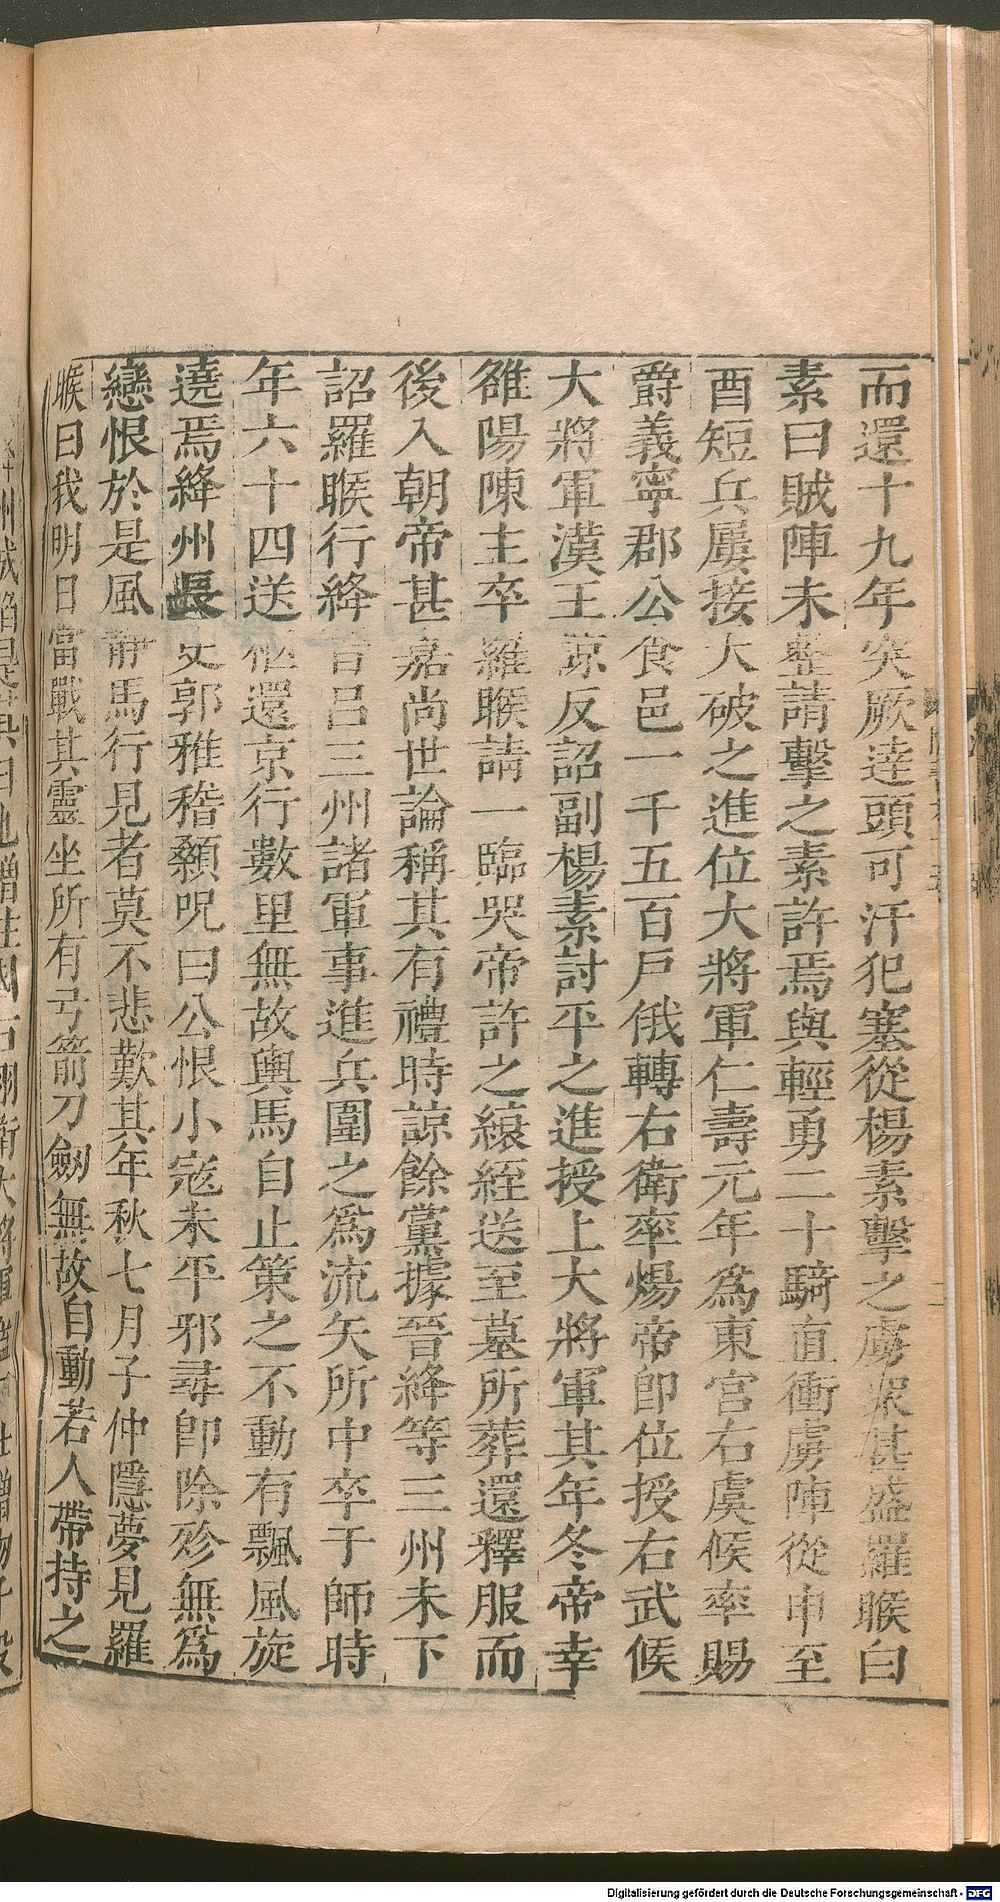 而還十九年突厥逹頭可汗犯塞從楊素擊之虜衆甚盛羅睺白
素曰賊陣未整請擊之素許焉與輕勇二十騎直衝虜陣從申至
酉短兵屢接大破之進位大將軍仁壽元年爲東宫右虞候率賜
爵義寧郡公食邑一千五百戸俄轉右衛率煬帝即位授右武候
大將軍漢王諒反詔副楊素討平之進授上大將軍其年冬帝幸
雒陽陳主卒羅睺請一臨哭帝許之縗絰送至墓所葬還釋服而
後入朝帝甚嘉尚世論稱其有禮時諒餘黨據晉絳等三州未下
詔羅睺行絳晉呂三州諸軍事進兵圍之爲流矢所中卒于師時
年六十四送柩還京行數里無故輿馬自止策之不動有飄風旋
遶焉絳州長史郭雅稽顙呪曰公恨小寇未平邪尋即除殄無爲
戀恨於是風靜馬行見者莫不悲歎其年秋七月子仲隱夢見羅
睺曰我明日當戰其靈坐所有弓箭刀劒無故自動若人帶持之
Digitalisierung gefördert durch die Deutsche Forschungsgemeinschaft - DFG